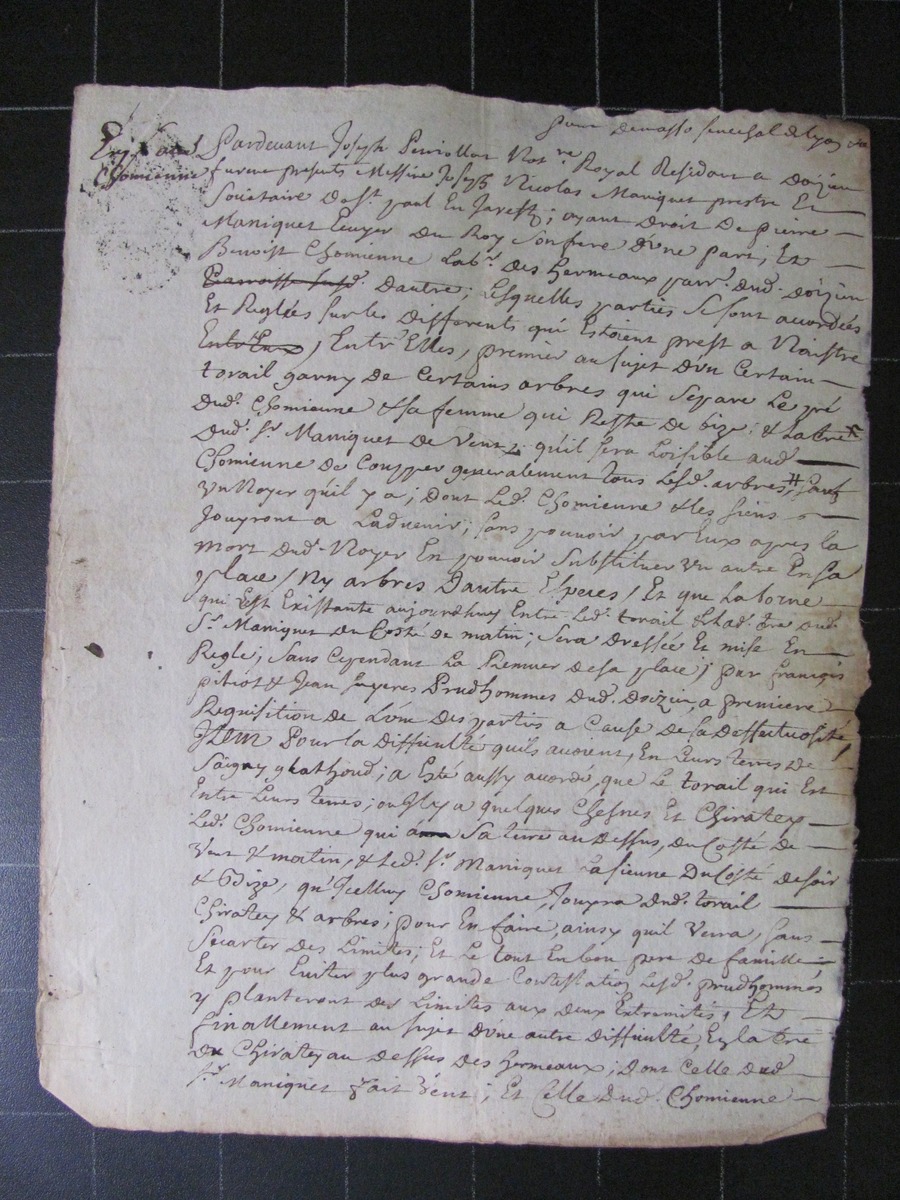 senechal de Lyon
Pardevant Joseph Perrollon Not.re Royal Residant a Doizieu
Chomienne
furent presents Messire Joseph Nicolas Maniquet prestre Et
Societaire de St. paul En Jarest; ayant Droit De pierre
Maniquet Ecuyer Du Roy son frere d'une part, Et
Benoist Chomienne lab.r des hermeaux parr.e dud. doizieu
D'autre; Lesquelles parties se sont accordées
Et Reglées sur les differents qui Estoient prest a Naistre
Entr'Eux, Entr'Elles, premier au sujet d'un Certain
torail garny de Certains arbres qui separe Le pré
dud. Chomienne & sa femme qui Reste de bize; & la tre
dud. Sr. Maniquet de Vent; qu'il sera Loisible aud.
Chomienne de Coupper generalement tous Lesd. arbres, #
Un Noyer qu'il y a; dont Led. Chomienne & les siens
Jouyront a Ladvenir; sans pouvoir par Eux apres la
mort dud. Noyer En pouvoir substituer Un autre En sa
place / Ny arbres Dautre Especes / Et que La borne
qui Est Existante aujourdhuy Entre Led. torail & lad. tre dud.
Sr. Maniquet du Costé de matin; sera dressée Et mise En
Regle; sans Cependant La Remuer de sa place; par françois
pitiot & Jean Prudhommes dud. Doizieu, a premiere
Requisition de L'une des partis a Cause de la deffectuosité
Item Pour la difficulté qu'ils avoient, En Leurs terres de
a Esté aussy accordé, que Le torail qui Est
Entre Leurs terres; ou Il y a quelques Chesnes Et Chiratey
Led. Chomienne qui a sa terre au Dessus, du Costé de
Vent & matin, & Led. Sr. Maniquet La sienne Du Costé de soir
& Bize, qu'Icelluy Chomienne, Jouyra dud. torail
Chiratey & arbres; pour En faire, ainsy qu'il Verra, sans
S'ecarter Des Limites; Et Le tout En bon pere de famille
Et pour Eviter plus grande Contestation Lesd. prudhommes
y planteront des Limites aux deux Extremités, Et
finallement au sujet D'une autre difficulté, En la tre
du Chiratey au dessus des hermeaux; dont Celle dud.
Sr. Maniquet fait Vent; Et Celle dud. Chomienne